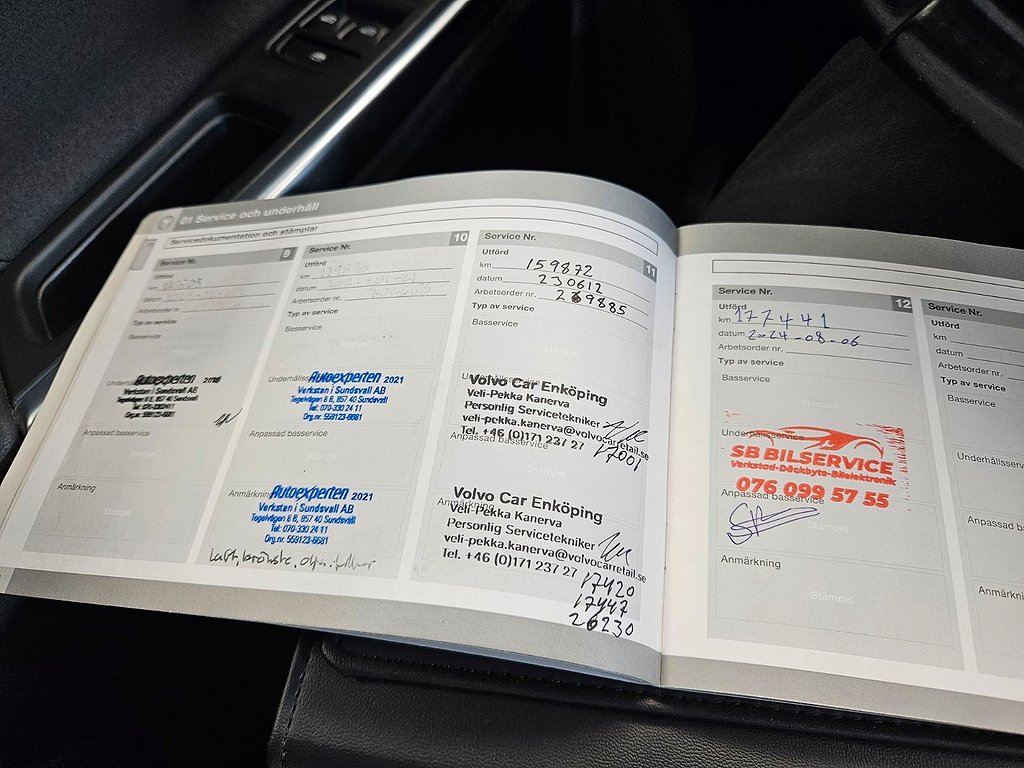 01 Service och underhåll
Servicedokumentation och stämplar
Service Nr. 9
Utförd
km
datum
Arbetsorder nr.
Typ av service
Basservice
Stämpel
Autoexperten
Verkstan i Sundsvall AB
Anpassad basservice
Anmärkning
Service Nr. 10
Utförd
km
datum
Arbetsorder nr.
Typ av service
Basservice
Stämpel
Autoexperten 2021
Verkstan i Sundsvall AB
Tegelvägen 8 B, 857 40 Sundsvall
Tel: 070-330 24 11
Org.nr. 559123-6681
Anpassad basservice
Anmärkning
Autoexperten 2021
Verkstan i Sundsvall AB
Tegelvägen 8 B, 857 40 Sundsvall
Tel: 070-330 24 11
Org.nr. 559123-6681
Service Nr. 11
Utförd
km 159872
datum 230612
Arbetsorder nr. 289885
Typ av service
Basservice
Stämpel
Volvo Car Enköping
Veli-Pekka Kanerva
Personlig Servicetekniker
veli-pekka.kanerva@volvocarretail.se
Tel. +46 (0)171 237 27
17001
Anpassad basservice
Stämpel
Volvo Car Enköping
Anmärkning
Veli-Pekka Kanerva
Personlig Servicetekniker
veli-pekka.kanerva@volvocarretail.se
Tel. +46 (0)171 237 27
17420
17447
26230
Service Nr. 12
Utförd
km 177441
datum 2024-08-06
Arbetsorder nr.
Typ av service
Basservice
Stämpel
Underhållsservice
SB BILSERVICE
Verkstad-Däckbyte-Bilelektronik
076 099 57 55
Anpassad basservice
Stämpel
Anmärkning
Stämpel
Service Nr.
Utförd
km
datum
Arbetsorder nr.
Typ av service
Basservice